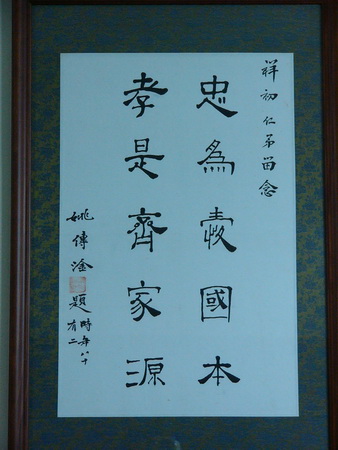 祥初仁弟留念
忠為愛國本
孝是齊家源
姚傳淦題
時年八十
有二